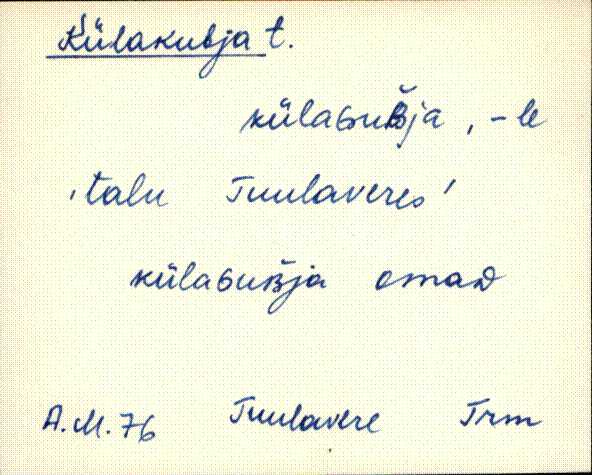 Külakubja t.
külaGuʙ̌ja, -le
'talu Tuulaveres'
külaGuʙja omaᴅ
A.M. 76 Tuulavere Trm